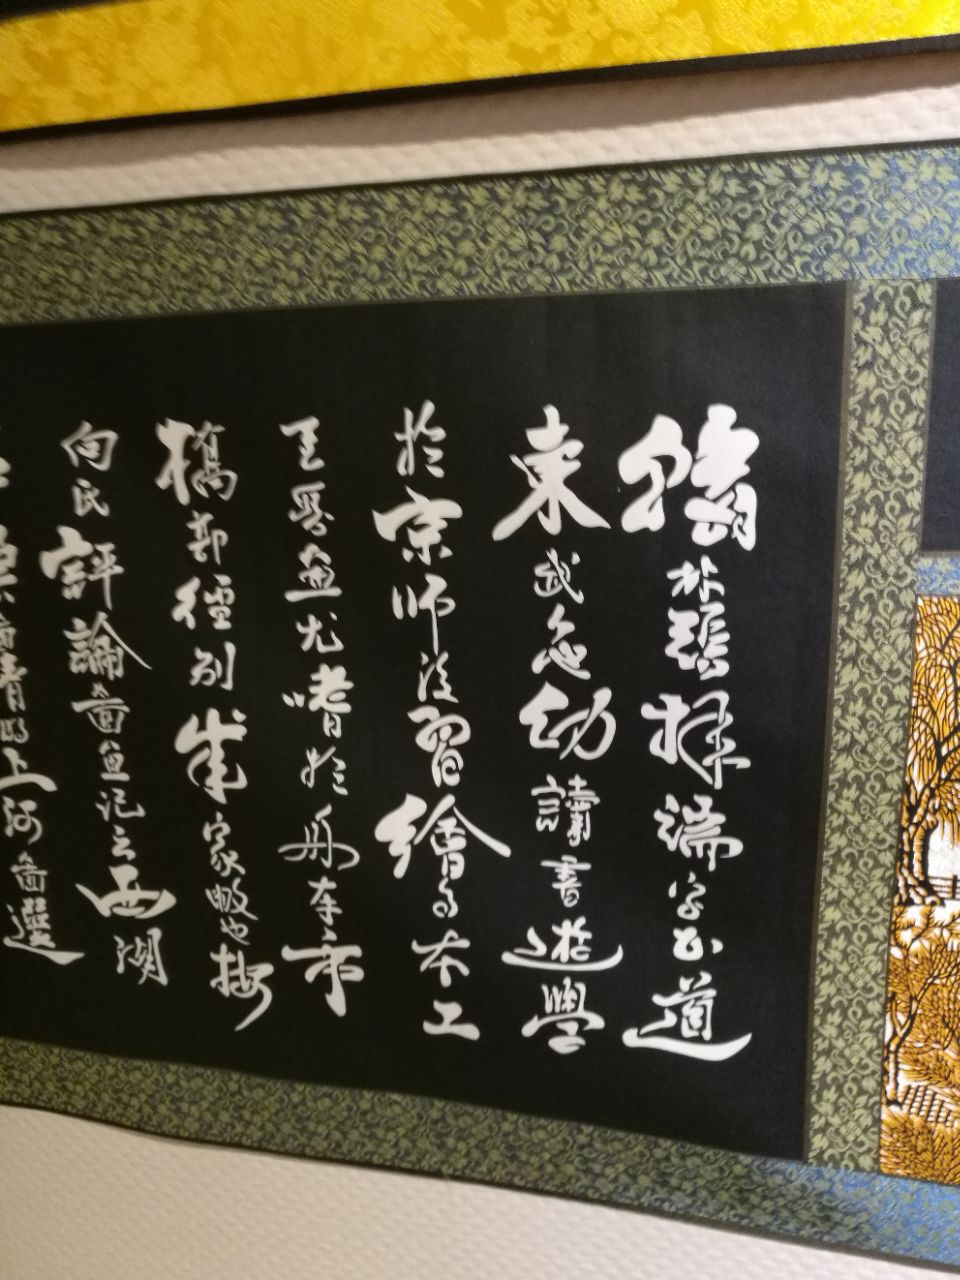 翰林張擇端字正道
東武人也幼讀書遊學
於京師後習繪事本工
其界畫尤嗜於舟車市
橋郭徑別成家數也按
向氏評論圖畫記云西湖
圖清明上河圖選